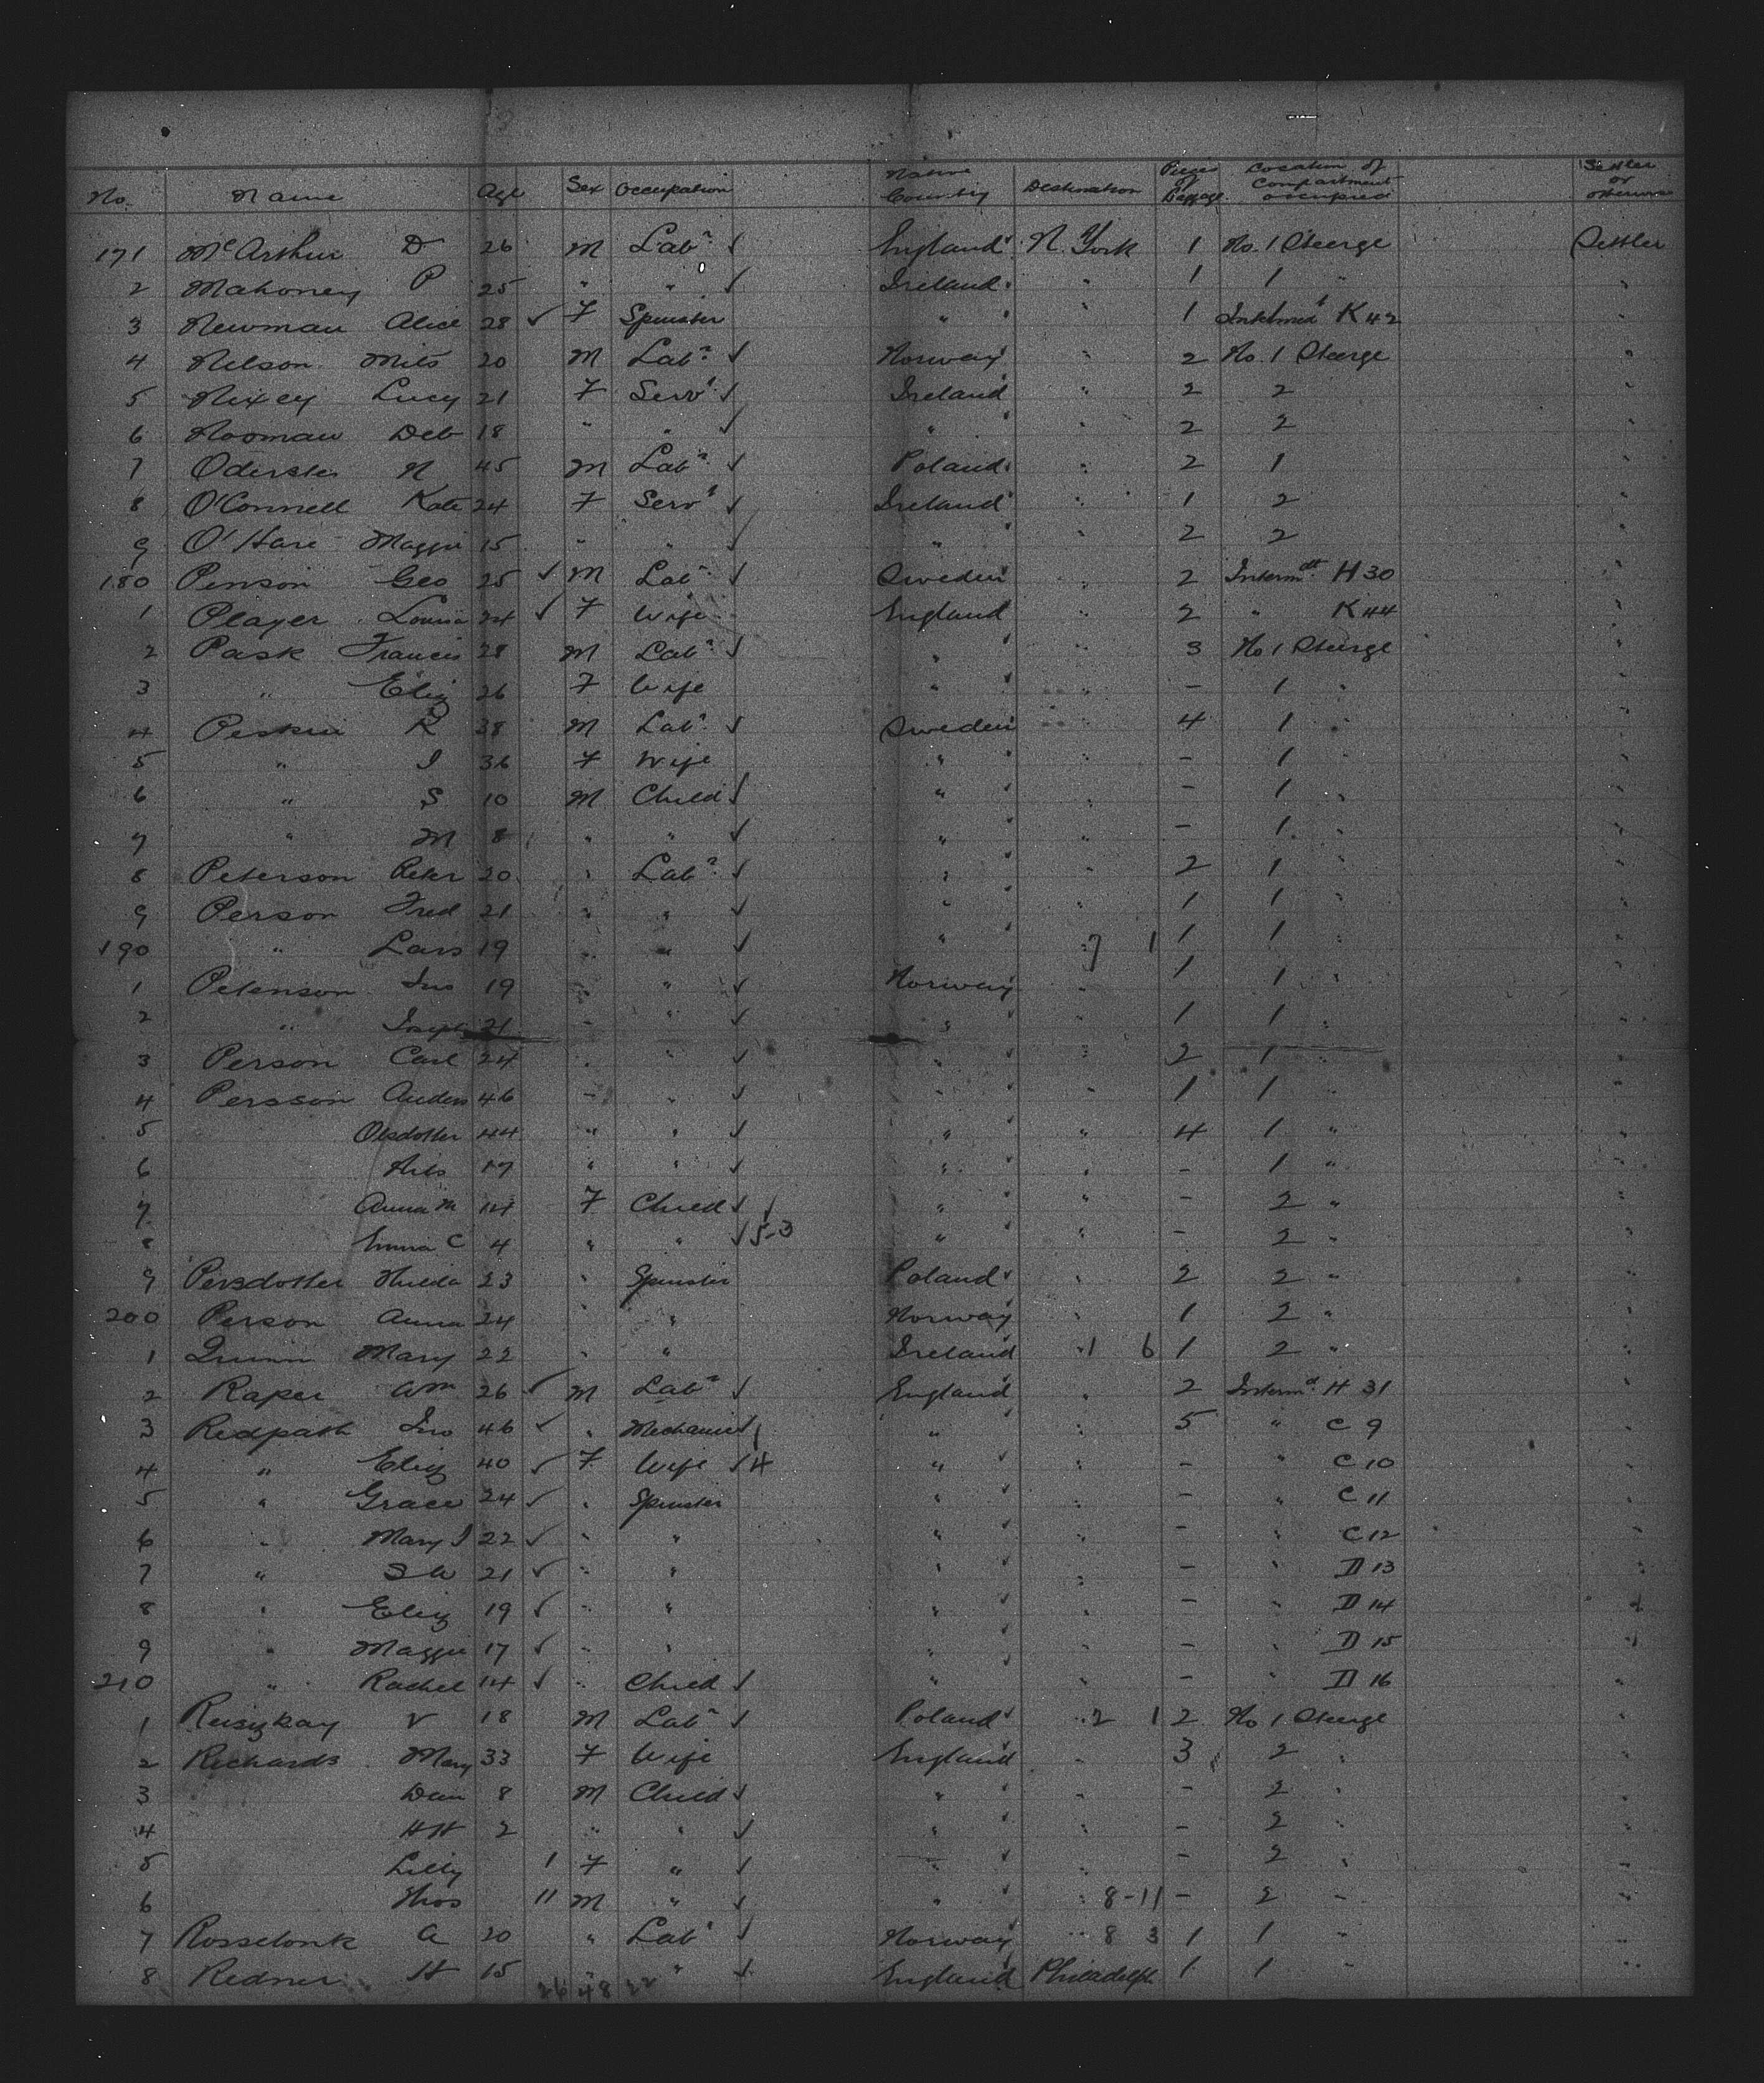 No. Name Age Sex Occupation Native Country Destination Pieces of Baggage Location of Compartment occupied Settler or otherwise
171 McArthur D 26 M Labr ✓ England N. York 1 No. 1 Steerge Settler
2 Mahoney P 25 " " ✓ Ireland " 1 1 " "
3 Newman Alice 28 ✓ F Spinster " " 1 K 42 "
4 Nelson Nils 20 M Labr ✓ Norway " 2 No. 1 Steerge "
5 Nixey Lucy 21 F Servt ✓ Ireland " 2 2 "
6 Nooman Deb 18 " " ✓ " " 2 2 "
7 N 45 M Labr ✓ Poland " 2 1 "
8 O'Connell Kate 24 F Servt ✓ Ireland " 1 2 "
9 O'Hare Maggie 15 " " ✓ " " 2 2 "
180 Penson Geo 25 ✓ M Labr ✓ Sweden " 2 Intermdt H 30 "
1 Player Louisa 24 ✓ F Wife England " 2 " K 44 "
2 Pask Francis 28 M Labr ✓ " " 3 No 1 Steerge "
3 " Eliz 26 F Wife " " - 1 " "
4 Peskin R 38 M Labr ✓ Sweden " 4 1 " "
5 " I 36 F Wife " " - 1 " "
6 " S 10 M Child ✓ " " - 1 " "
7 " M 8 " " ✓ " " - 1 " "
8 Peterson Peter 20 " Labr ✓ " " 2 1 " "
9 Person Fred 21 " " ✓ " " 1 1 " "
190 " Lars 19 " " ✓ " " 7 1 1 1 " "
1 Petenson Jno 19 " " ✓ Norway " 1 1 " "
2 " Joseph 21 " " ✓ " " 1 1 " "
3 Person Carl 24 " " ✓ " " 2 1 " "
4 Persson Anders 46 " " ✓ " " 1 1 " "
5 Olsdotter 44 " " ✓ " " 4 1 " "
6 Nils 17 " " ✓ " " - 1 " "
7 Anna M 14 F Child ✓ " " - 2 " "
8 Emma C 4 " " ✓ 5-3 " " - 2 " "
9 Persdotter Hulda 23 " Spinster Poland " 2 2 " "
200 Person Anna 24 " " Norway " 1 2 " "
1 Quinn Mary 22 " " Ireland " 1 6 1 2 " "
2 Raper Wm 26 ✓ M Labr ✓ England " 2 Intermd H 31 "
3 Redpath Jno 46 ✓ " Mechanic ✓ 1 " " 5 " C 9 "
4 " Eliz 40 ✓ F Wife ✓ 4 " " - " C 10 "
5 " Grace 24 ✓ " Spinster " " - " C 11 "
6 " Mary J 22 ✓ " " " " - " C 12 "
7 " S W 21 ✓ " " " " - " D 13 "
8 " Eliz 19 ✓ " " " " - " D 14 "
9 " Maggie 17 ✓ " " " " - " D 15 "
210 " Rachel 14 ✓ " Child ✓ " " - " D 16 "
1 Reiszkay V 18 M Labr ✓ Poland " 2 1 2 No 1 Steerge "
2 Richards Mary 33 F Wife England " 3 2 " "
3 Dan 8 M Child ✓ " " - 2 " "
4 HH 2 " " ✓ " " - 2 " "
5 Lilly 1 F " ✓ " " - 2 " "
6 Thos 11 M " ✓ " " 8-11 - 2 " "
7 Rosselonk A 20 " Labr ✓ Norway " 8 3 1 1 " "
8 Redner H 15 " " ✓ England Philadelph 1 1 " "
26 48 22